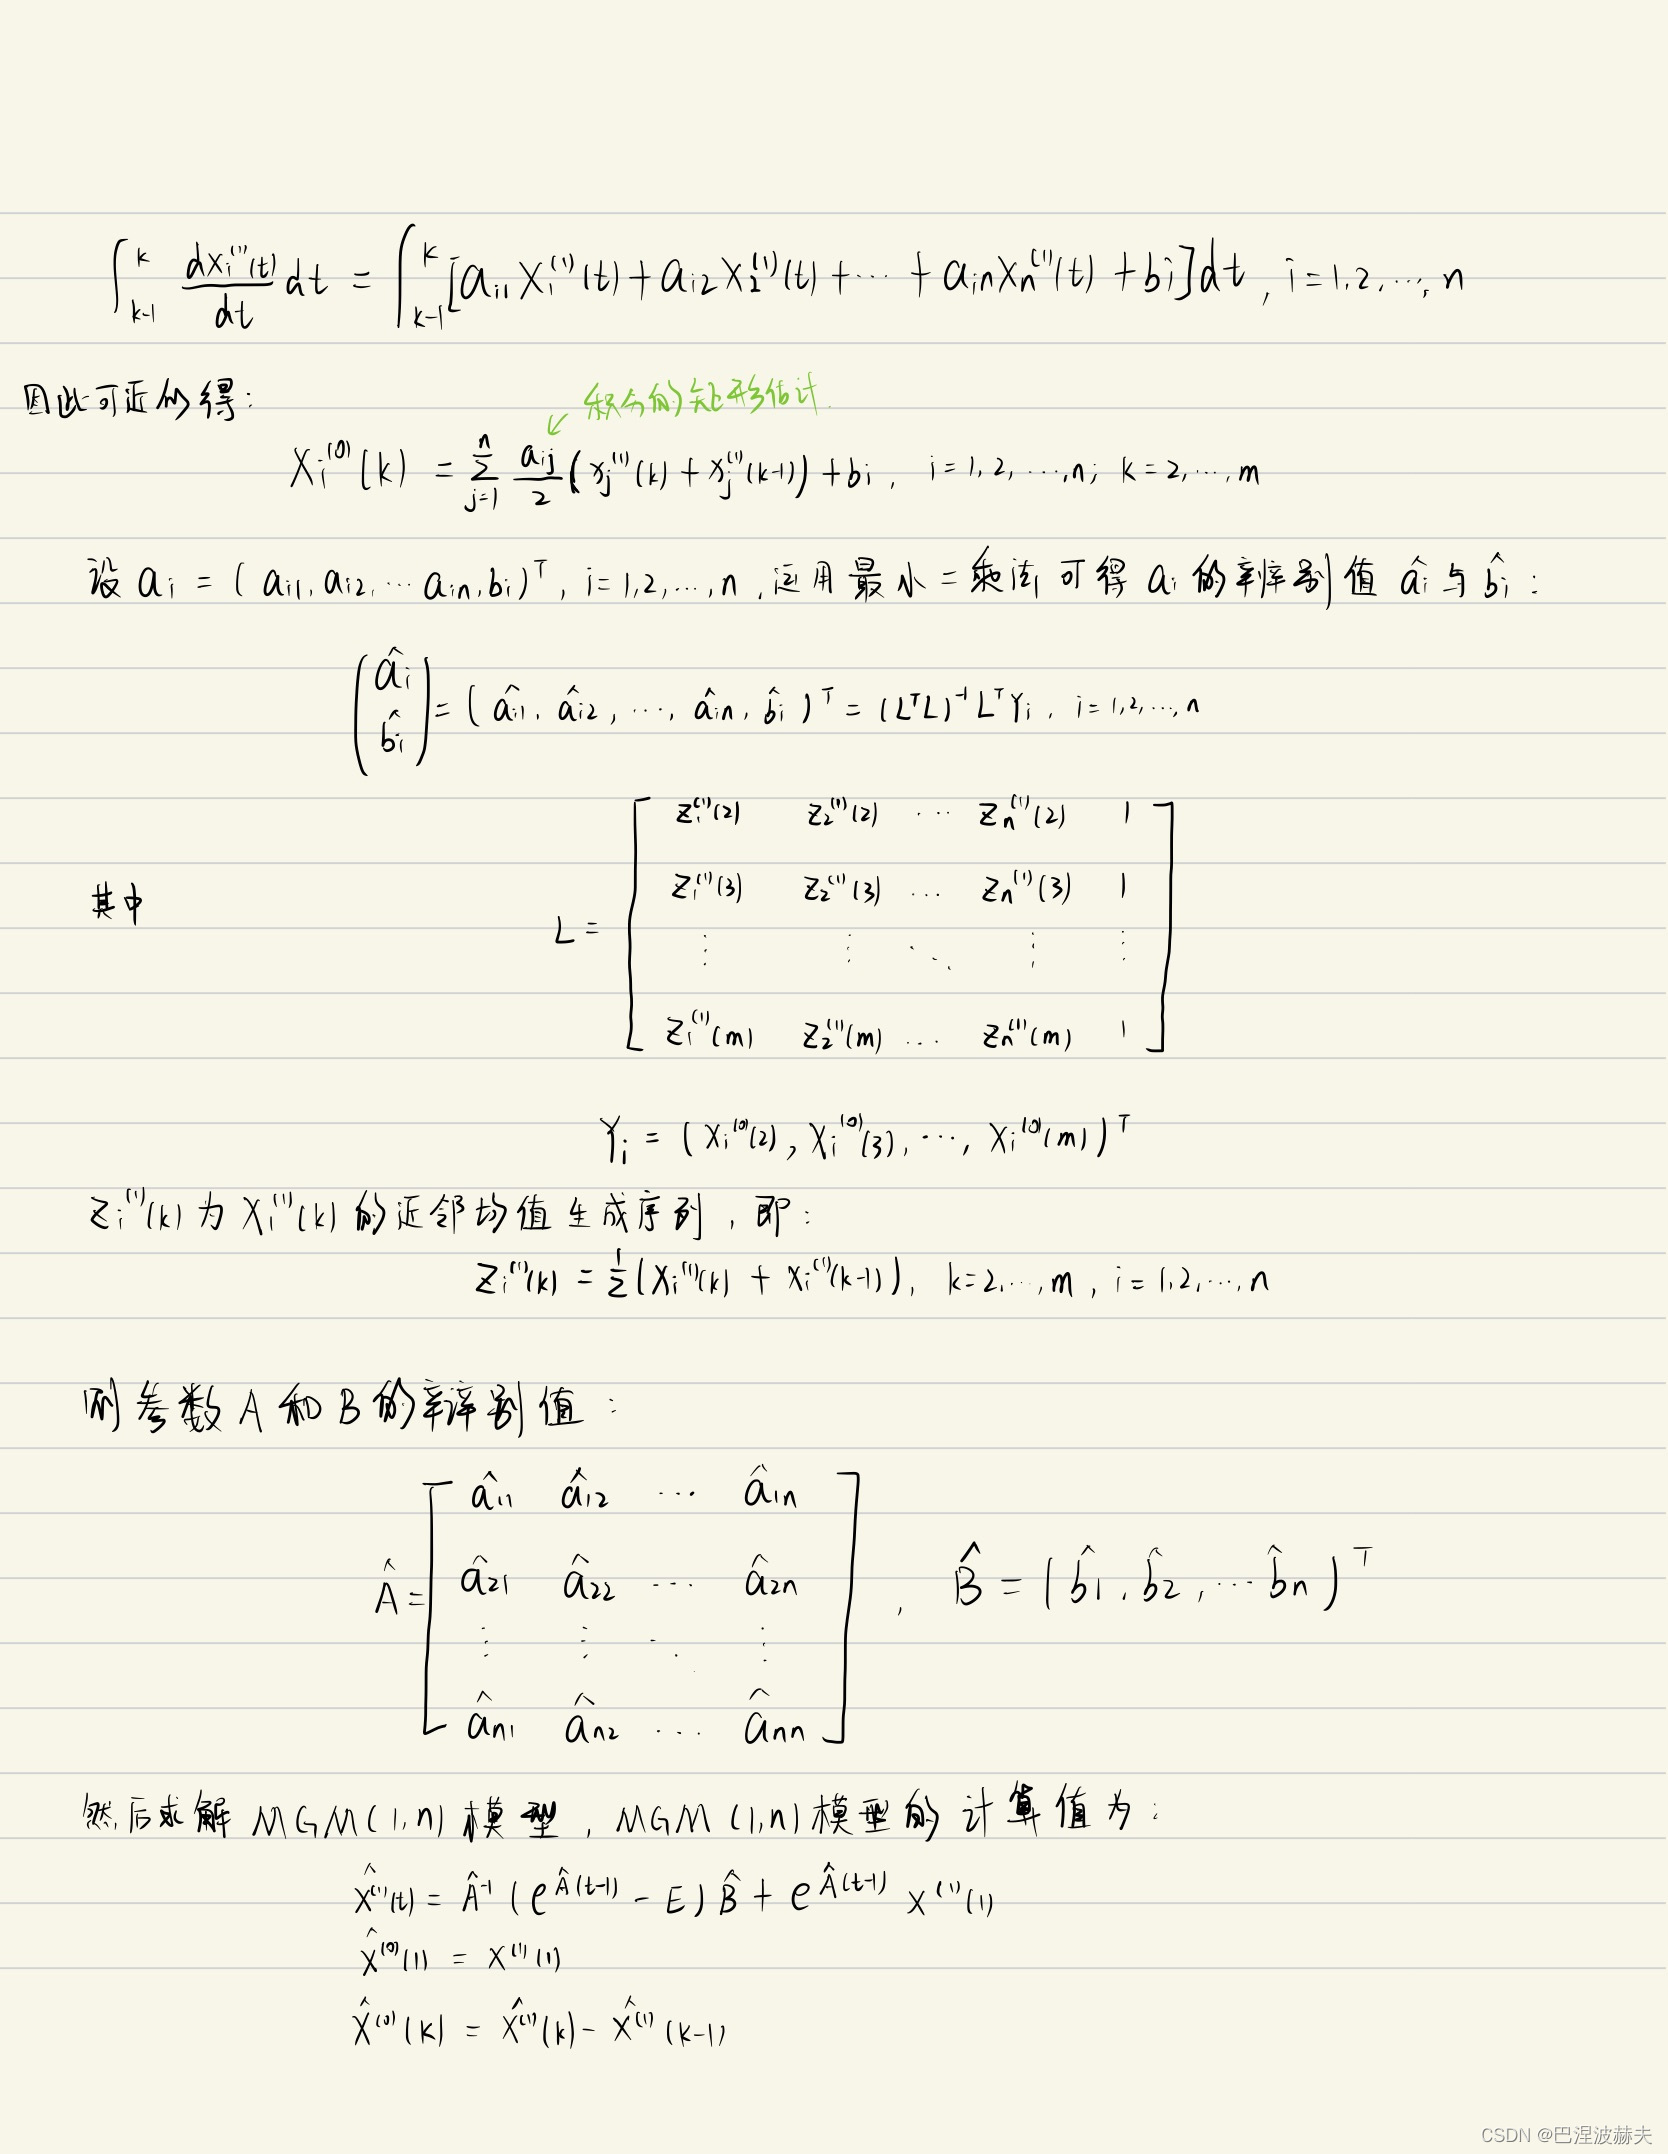 ∫_{k-1}^{k} dx_i^{(1)}(t)/dt dt = ∫_{k-1}^{k} [a_{i1} X_1^{(1)}(t) + a_{i2} X_2^{(1)}(t) + ⋯ + a_{in} X_n^{(1)}(t) + b_i] dt, i=1,2,…,n
因此可近似得:
积分的矩形估计.
X_i^{(0)}(k) = Σ_{j=1}^{n} a_{ij}/2 (x_j^{(1)}(k) + x_j^{(1)}(k-1)) + b_i, i=1,2,…,n; k=2,…,m
设 a_i = (a_{i1}, a_{i2}, … a_{in}, b_i)^T, i=1,2,…,n, 运用最小二乘法可得 a_i 的辨别值 â_i 与 b̂_i:
(â_i b̂_i) = (â_{i1}, â_{i2}, …, â_{in}, b̂_i)^T = (L^T L)^{-1} L^T Y_i, i=1,2,…,n
z_1^{(1)}(2) z_2^{(1)}(2) … z_n^{(1)}(2) 1
z_1^{(1)}(3) z_2^{(1)}(3) … z_n^{(1)}(3) 1
其中 L = ⋮ ⋮ ⋱ ⋮ ⋮
z_1^{(1)}(m) z_2^{(1)}(m) … z_n^{(1)}(m) 1
Y_i = (x_i^{(0)}(2), x_i^{(0)}(3), …, x_i^{(0)}(m))^T
z_i^{(1)}(k) 为 X_i^{(1)}(k) 的近邻均值生成序列, 即:
z_i^{(1)}(k) = 1/2 (x_i^{(1)}(k) + x_i^{(1)}(k-1)), k=2,…,m, i=1,2,…,n
则参数 A 和 B 的辨别值:
â_{11} â_{12} … â_{1n}
â_{21} â_{22} … â_{2n}
Â = ⋮ ⋮ ⋱ ⋮ , B̂ = (b̂_1, b̂_2, … b̂_n)^T
â_{n1} â_{n2} … â_{nn}
然后求解 MGM(1,n) 模型, MGM(1,n) 模型的计算值为:
x̂^{(1)}(t) = Â^{-1} (e^{Â(t-1)} - E) B̂ + e^{Â(t-1)} x^{(1)}(1)
x̂^{(0)}(1) = x^{(1)}(1)
x̂^{(0)}(k) = x̂^{(1)}(k) - x̂^{(1)}(k-1)
CSDN @巴涅波赫夫